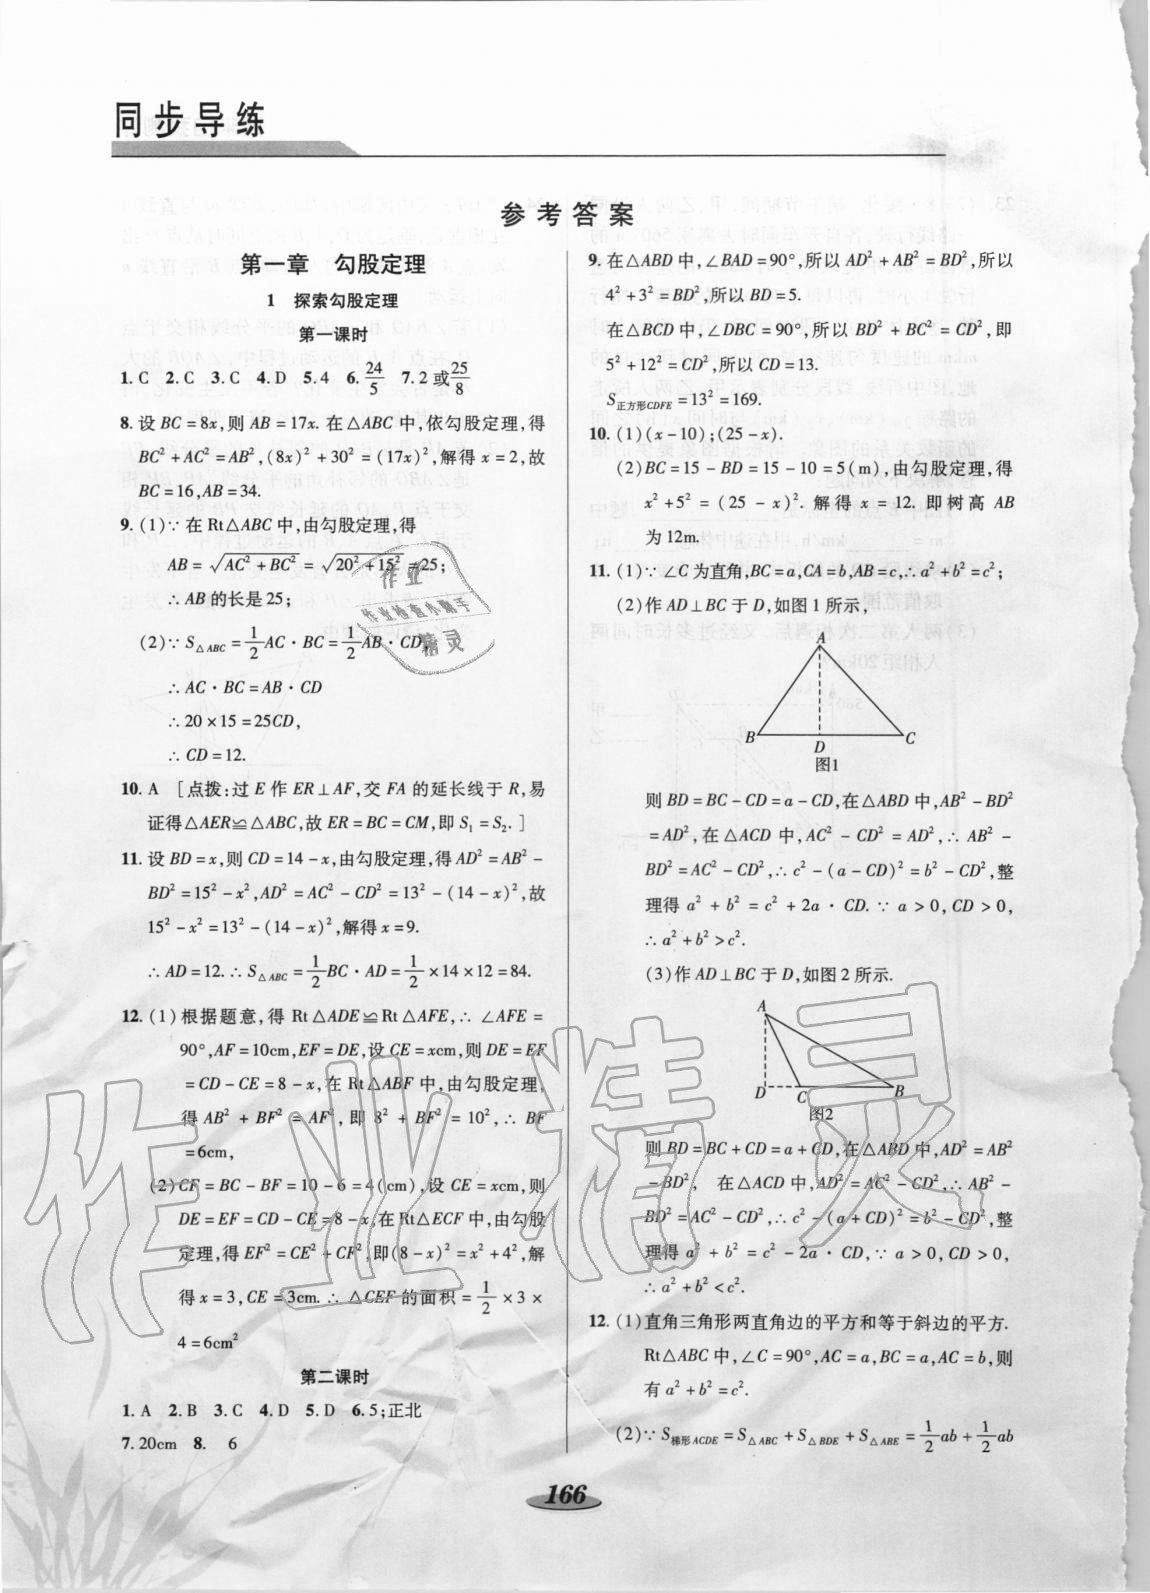 同步导练
参考答案
第一章 勾股定理
1 探索勾股定理
第一课时
1. C 2. C 3. C 4. D 5. 4 6. 24/5 7. 2 或 25/8
8. 设 BC = 8x, 则 AB = 17x. 在△ABC 中, 依勾股定理, 得
BC² + AC² = AB², (8x)² + 30² = (17x)², 解得 x = 2, 故
BC = 16, AB = 34.
9. (1)∵ 在 Rt△ABC 中, 由勾股定理, 得
AB = √(AC² + BC²) = √(20² + 15²) = 25;
∴ AB 的长是 25;
(2)∵ S△ABC = 1/2 AC · BC = 1/2 AB · CD,
∴ AC · BC = AB · CD
∴ 20 × 15 = 25CD,
∴ CD = 12.
10. A [点拨:过 E 作 ER⊥AF, 交 FA 的延长线于 R, 易
证得△AER≌△ABC, 故 ER = BC = CM, 即 S₁ = S₂. ]
11. 设 BD = x, 则 CD = 14 − x, 由勾股定理, 得 AD² = AB² −
BD² = 15² − x², AD² = AC² − CD² = 13² − (14 − x)², 故
15² − x² = 13² − (14 − x)², 解得 x = 9.
∴ AD = 12. ∴ S△ABC = 1/2 BC · AD = 1/2 × 14 × 12 = 84.
12. (1)根据题意, 得 Rt△ADE≌Rt△AFE, ∴ ∠AFE =
90°, AF = 10cm, EF = DE, 设 CE = xcm, 则 DE = EF
= CD − CE = 8 − x, 在 Rt△ABF 中, 由勾股定理,
得 AB² + BF² = AF², 即 8² + BF² = 10², ∴ BF
= 6cm,
(2)CF = BC − BF = 10 − 6 = 4(cm), 设 CE = xcm, 则
DE = EF = CD − CE = 8 − x, 在 Rt△ECF 中, 由勾股
定理, 得 EF² = CE² + CF², 即(8 − x)² = x² + 4², 解
得 x = 3, CE = 3cm. ∴ △CEF 的面积 = 1/2 × 3 ×
4 = 6cm²
第二课时
1. A 2. B 3. C 4. D 5. D 6. 5;正北
7. 20cm 8. 6
9. 在△ABD 中, ∠BAD = 90°, 所以 AD² + AB² = BD², 所以
4² + 3² = BD², 所以 BD = 5.
在△BCD 中, ∠DBC = 90°, 所以 BD² + BC² = CD², 即
5² + 12² = CD², 所以 CD = 13.
S正方形CDFE = 13² = 169.
10. (1)(x − 10);(25 − x).
(2)BC = 15 − BD = 15 − 10 = 5(m), 由勾股定理, 得
x² + 5² = (25 − x)². 解得 x = 12. 即树高 AB
为 12m.
11. (1)∵ ∠C 为直角, BC = a, CA = b, AB = c, ∴ a² + b² = c²;
(2)作 AD⊥BC 于 D, 如图 1 所示,
A
B D C
图1
则 BD = BC − CD = a − CD, 在△ABD 中, AB² − BD²
= AD², 在△ACD 中, AC² − CD² = AD², ∴ AB² −
BD² = AC² − CD², ∴ c² − (a − CD)² = b² − CD², 整
理得 a² + b² = c² + 2a · CD. ∵ a > 0, CD > 0,
∴ a² + b² > c².
(3)作 AD⊥BC 于 D, 如图 2 所示.
A
D C B
图2
则 BD = BC + CD = a + CD, 在△ABD 中, AD² = AB²
− BD², 在△ACD 中, AD² = AC² − CD², ∴ AB² −
BD² = AC² − CD², ∴ c² − (a + CD)² = b² − CD², 整
理得 a² + b² = c² − 2a · CD, ∵ a > 0, CD > 0,
∴ a² + b² < c².
12. (1)直角三角形两直角边的平方和等于斜边的平方.
Rt△ABC 中, ∠C = 90°, AC = a, BC = a, AC = b, 则
有 a² + b² = c².
(2)∵ S梯形ACDE = S△ABC + S△BDE + S△ABE = 1/2 ab + 1/2 ab
166
作业
作业检查小帮手
精灵
作业精灵